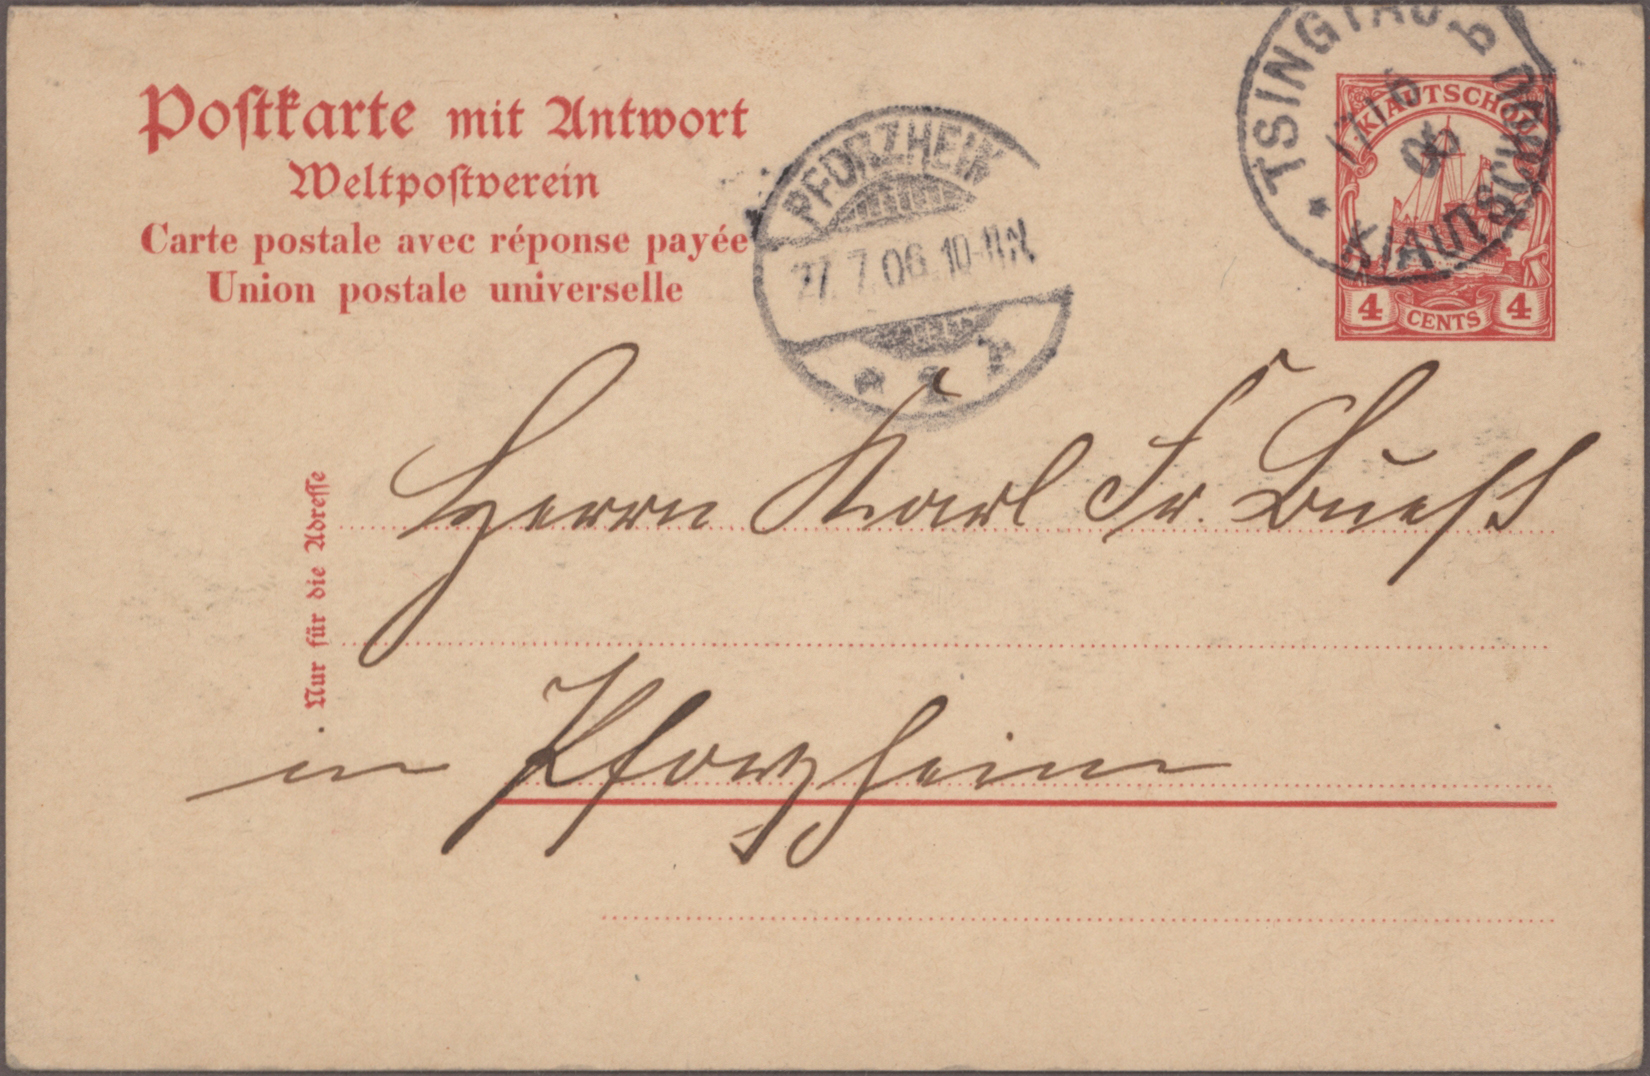 Postkarte mit Antwort
Weltpostverein
Carte postale avec réponse payée
Union postale universelle
PFORZHEIM
27.7.06.10-11N
TSINGTAU b
KIAUTSCHOU
KIAUTSCHOU
4 CENTS 4
Nur für die Adresse
Herrn Karl Fr. Buess
in Pforzheim